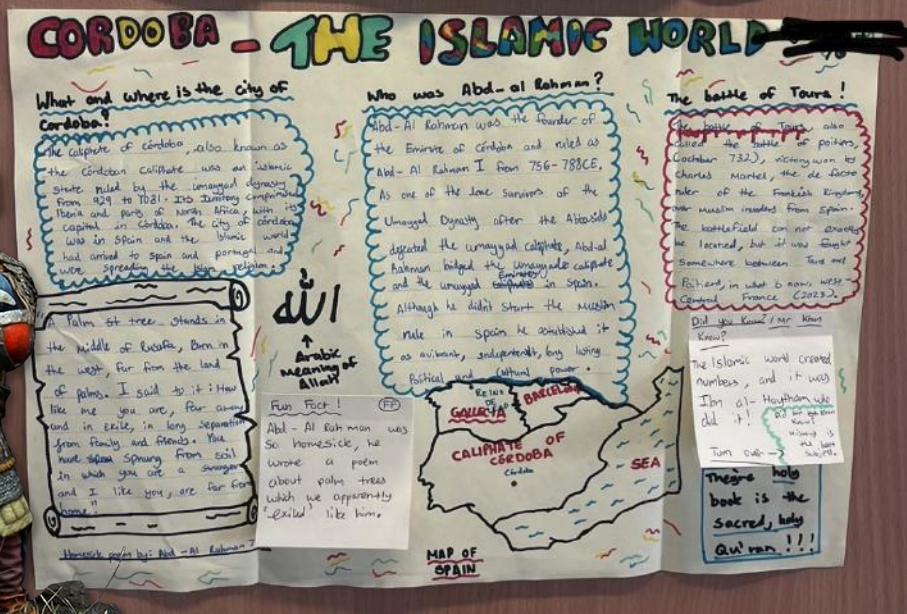 CORDOBA - THE ISLAMIC WORLD
What and where is the city of
Cordoba?
The caliphate of córdoba, also known as
the córdoban Caliphate was an islamic
state ruled by the umayyad dynasty
from 929 to 1031. Its territory comprised
Iberia and parts of North Africa, with its
capital in Córdoba. The city of córdoba
was in Spain and the Islamic world
had arrived to spain and portugal and
were spreading the religion.
A Palm tree stands in
the middle of Rusafa, Born in
the west, far from the land
of palms. I said to it: How
like me you are, far away
and in exile, in long separation
from family and friends. You
have sprung from soil
in which you are a stranger
and I like you, are far from
home"
Homesick poem by: Abd - Al Rahman I
الله
↑
Arabic
Meaning of
Allah
Fun Fact! FF
Abd - Al Rahman was
so homesick, he
wrote a poem
about palm trees
which we apparently
'exiled' like him.
Who was Abd-al Rahman?
Abd-Al Rahman was the founder of
the Emirate of Córdoba and ruled as
Abd-Al Rahman I from 756-788CE.
As one of the lone survivors of the
Umayyad Dynasty after the Abbasids
defeated the umayyad caliphate, Abd-al
Rahman bridged the umayyade caliphate
and the umayyad Emirates in Spain.
Although he didn't start the Muslim
rule in Spain he established it
as independent, long lasting
Political and cultural power.
GALLECIA
BARCELONA
CALIPHATE OF
CÓRDOBA
Córdoba
SEA
MAP OF
SPAIN
The battle of Tours!
The battle of Tours, also
called the battle of poitiers,
(October 732), victory won by
Charles Martel, the de facto
ruler of the Frankish Kingdom,
over Muslim invaders from Spain.
The battlefield can not exactly
be located, but it was fought
somewhere between Tours and
Poitiers, in what is now, west-
Central France (2023).
Did you Know? / Mr Khan
Know?
The Islamic world created
numbers, and it was
Ibn al-Haytham who
did it!
Turn over
Know?
History is
the best
Subject.
holy
book is the
sacred, holy
Qu'ran !!!